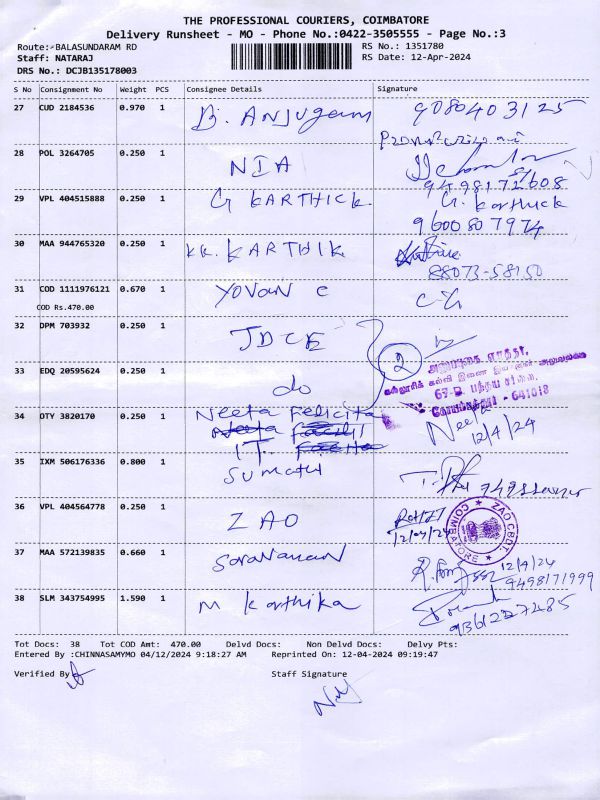 THE PROFESSIONAL COURIERS, COIMBATORE
Delivery Runsheet - MO - Phone No.:0422-3505555 - Page No.:3
Route: BALASUNDARAM RD
RS No.: 1351780
Staff: NATARAJ
RS Date: 12-Apr-2024
DRS No.: DCJB135178003
S No Consignment No Weight PCS Consignee Details Signature
27 CUD 2184536 0.970 1 B. ANJUgam 9080403125
28 POL 3264705 0.250 1 NIA
9498172608
29 VPL 404515888 0.250 1 G KARTHICK G. Karthick
9600807974
30 MAA 944765320 0.250 1 KK. KARTHIK
88073-58150
31 COD 1111976121 0.670 1 YOVAN C
COD Rs.470.00
32 DPM 703932 0.250 1 JDCE
2
33 EDQ 20595624 0.250 1 do
67-B,
641018
34 OTY 3820170 0.250 1 Neeta Felicita Neeta
12/4/24
I.T.
35 IXM 506176336 0.800 1 Sumathi
36 VPL 404564778 0.250 1 ZAO
COIMBATORE
37 MAA 572139835 0.660 1 Saravanan 12/4/24
9498171999
38 SLM 343754995 1.590 1 M Karthika
9361227485
Tot Docs: 38 Tot COD Amt: 470.00 Delvd Docs: Non Delvd Docs: Delvy Pts:
Entered By :CHINNASAMYMO 04/12/2024 9:18:27 AM Reprinted On: 12-04-2024 09:19:47
Verified By Staff Signature